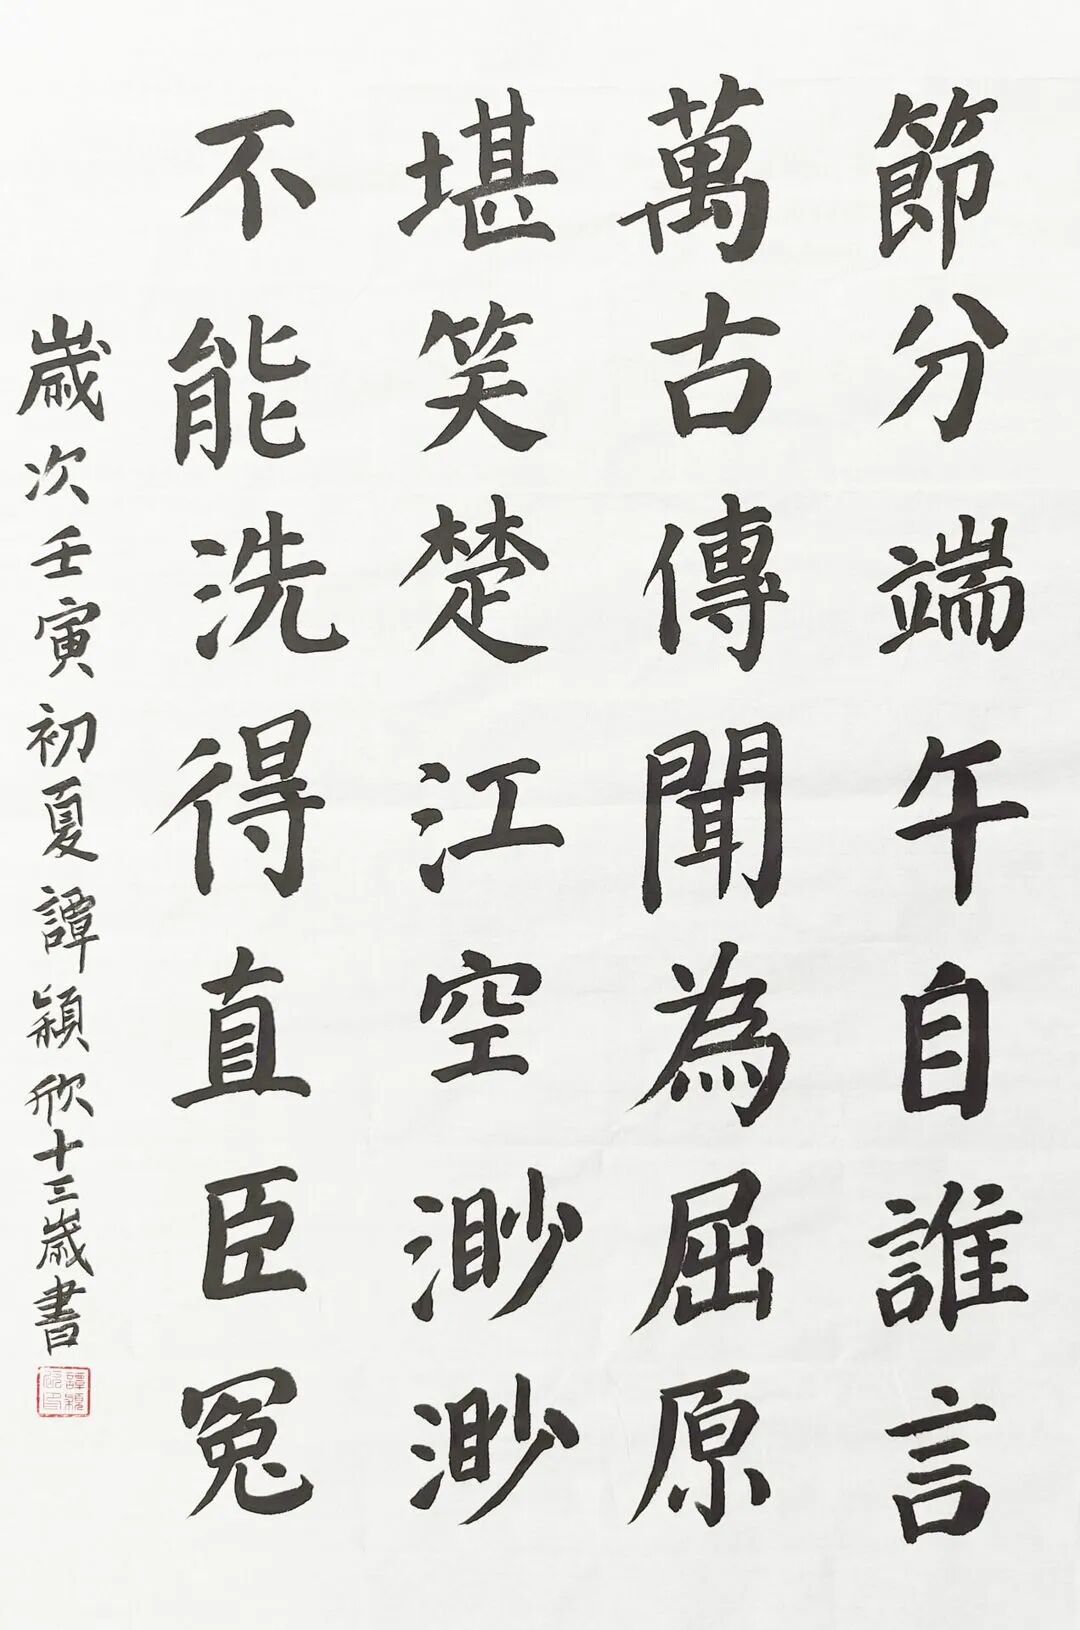 節分端午自誰言
萬古傳聞為屈原
堪笑楚江空渺渺
不能洗得直臣冤
歲次壬寅初夏譚穎欣十三歲書